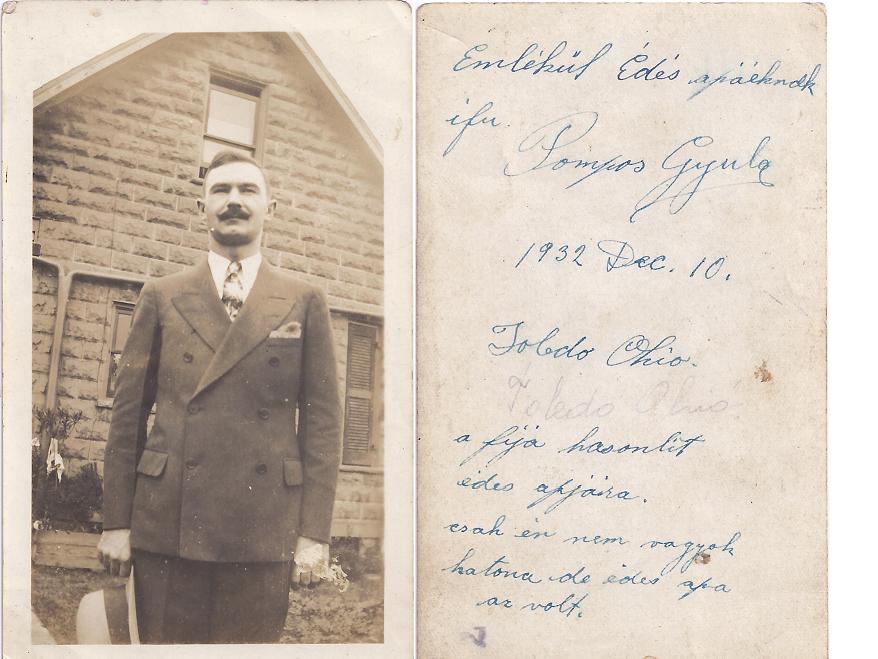 Emlékül Édés apáéknak
ifu.
Pompos Gyula
1932 Dec. 10.
Toledo Ohio.
Toledo Ohió.
a fija hasonlit
édes apjára.
csak én nem vagyok
katona de édes apa
az volt.